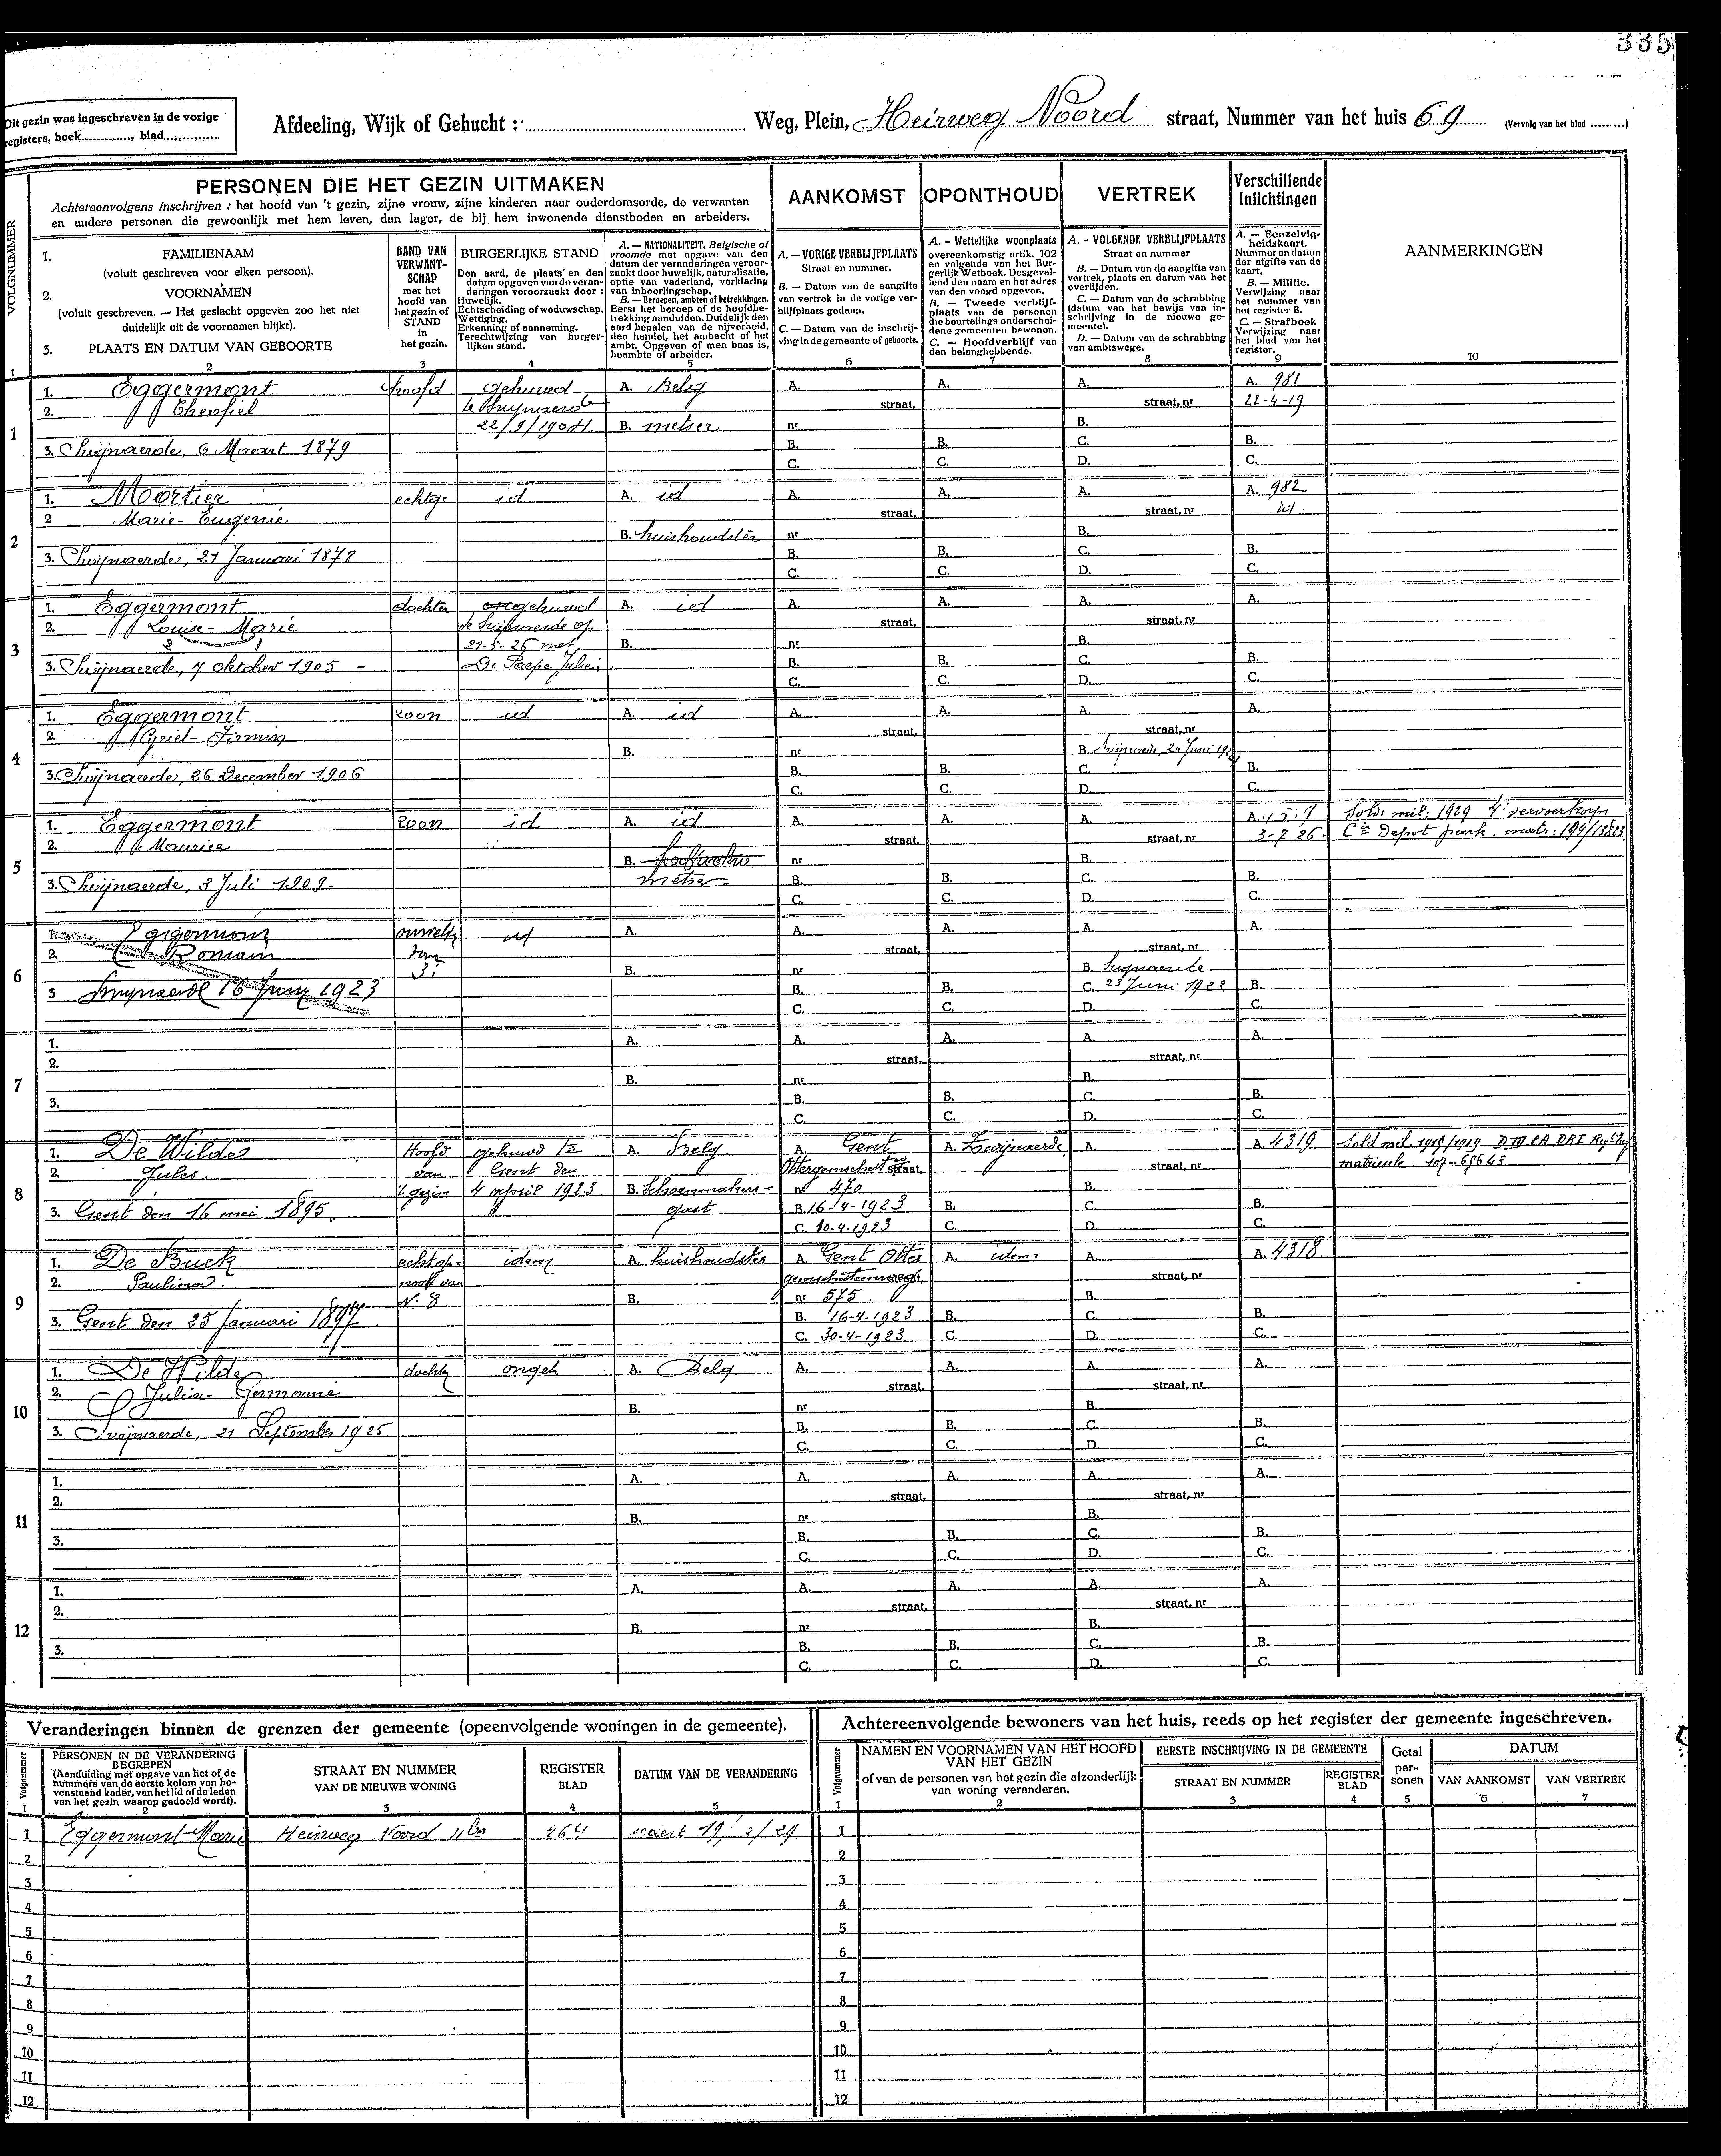 335
Dit gezin was ingeschreven in de vorige
registers, boek............., blad.............
Afdeeling, Wijk of Gehucht : Weg, Plein, Heirweg Noord straat, Nummer van het huis 69 (Vervolg van het blad ........)
VOLGNUMMER
PERSONEN DIE HET GEZIN UITMAKEN
Achtereenvolgens inschrijven : het hoofd van 't gezin, zijne vrouw, zijne kinderen naar ouderdomsorde, de verwanten
en andere personen die gewoonlijk met hem leven, dan lager, de bij hem inwonende dienstboden en arbeiders.
AANKOMST
OPONTHOUD
VERTREK
Verschillende
Inlichtingen
1. FAMILIENAAM
(voluit geschreven voor elken persoon).
2. VOORNAMEN
(voluit geschreven. — Het geslacht opgeven zoo het niet
duidelijk uit de voornamen blijkt).
3. PLAATS EN DATUM VAN GEBOORTE
BAND VAN
VERWANT-
SCHAP
met het
hoofd van
het gezin of
STAND
in
het gezin.
BURGERLIJKE STAND
Den aard, de plaats en den
datum opgeven van de veran-
deringen veroorzaakt door :
Huwelijk.
Echtscheiding of weduwschap.
Wettiging.
Erkenning of aanneming.
Terechtwijzing van burger-
lijken stand.
A. — NATIONALITEIT. Belgische of
vreemde met opgave van den
datum der veranderingen veroor-
zaakt door huwelijk, naturalisatie,
optie van vaderland, verklaring
van inboorlingschap.
B. — Beroepen, ambten of betrekkingen.
Eerst het beroep of de hoofdbe-
trekking aanduiden. Duidelijk den
aard bepalen van de nijverheid,
den handel, het ambacht of het
ambt. Opgeven of men baas is,
beambte of arbeider.
A. — VORIGE VERBLIJFPLAATS
Straat en nummer.
B. — Datum van de aangifte
van vertrek in de vorige ver-
blijfplaats gedaan.
C. — Datum van de inschrij-
ving in de gemeente of geboorte.
A. - Wettelijke woonplaats
overeenkomstig artik. 102
en volgende van het Bur-
gerlijk Wetboek. Desgeval-
lend den naam en het adres
van den voogd opgeven.
B. — Tweede verblijf-
plaats van de personen
die beurtelings onderschei-
dene gemeenten bewonen.
C. — Hoofdverblijf van
den belanghebbende.
A. - VOLGENDE VERBLIJFPLAATS
Straat en nummer
B. — Datum van de aangifte van
vertrek, plaats en datum van het
overlijden.
C. — Datum van de schrabbing
(datum van het bewijs van in-
schrijving in de nieuwe ge-
meente).
D. — Datum van de schrabbing
van ambtswege.
A. — Eenzelvig-
heidskaart.
Nummer en datum
der afgifte van de
kaart.
B. — Militie.
Verwijzing naar
het nummer van
het register B.
C. — Strafboek
Verwijzing naar
het blad van het
register.
AANMERKINGEN
1 2 3 4 5 6 7 8 9 10
1
1. Eggermont hoofd gehuwd A. Belg A. A. A. A. 981
2. Theofiel straat, straat, nr 22-4-19
22/9/1904. B. metser nr B.
3. Swijnaerde, 6 Maart 1879 B. B. C. B.
C. C. D. C.
2
1. Mortier echtge id A. id A. A. A. A. 982
2 Marie-Eugenie straat, straat, nr id.
B. huishoudster nr B.
3. Swijnaerde, 21 Januari 1878 B. B. C. B.
C. C. D. C.
3
1. Eggermont dochter ongehuwd A. id A. A. A. A.
2. Louise-Marie te Swijnaerde op straat, straat, nr
2 1 21-5-26 met B. nr B.
3. Swijnaerde, 7 Oktober 1905 - De Paepe Julien B. B. C. B.
C. C. D. C.
4
1. Eggermont zoon id A. id A. A. A. A.
2. Cyriel-Firmin straat, straat, nr
B. nr B. Swijnaerde, 26 Juni
3. Swijnaerde, 26 December 1906 B. B. C. B.
C. C. D. C.
5
1. Eggermont zoon id A. id A. A. A. A. Sold. mil. 1929 4e vervoerkorps
2. Maurice straat, straat, nr 3-7-26. Cie Depot park. matr:
B. nr B.
3. Swijnaerde, 3 Juli 1909. metser B. B. C. B.
C. C. D. C.
6
1. Eggermont id A. A. A. A. A.
2. Romain van straat, straat, nr
3: B. nr B. Swijnaerde
3 Swijnaerde 16 Juny 1923 B. B. C. 23 Juni 1923 B.
C. C. D. C.
7
1. A. A. A. A. A.
2. straat, straat, nr
B. nr B.
3. B. B. C. B.
C. C. D. C.
8
1. De Wilde Hoofd gehuwd te A. Belg A. Gent A. Zwijnaerde A. A. 4319 Sold mil. 1915/1919
2. Jules. van Gent den straat, straat, nr matricule 107-65643
't gezin 4 april 1923 B. Schoenmakers- nr 470 B.
3. Gent den 16 mei 1895. gast B. 16-4-1923 B. C. B.
C. 30-4-1923 C. D. C.
9
1. De Buck echtge- idem A. huishoudster A. Gent Otter A. idem A. A. 4318.
2. Paulina. noot van gemschesteenweg straat, nr
N: 8 B. nr 575. B.
3. Gent den 25 Januari 1897. B. 16-4-1923 B. C. B.
C. 30-4-1923. C. D. C.
10
1. De Wilde dochter ongeh A. Belg A. A. A. A.
2. Julia-Germaine straat, straat, nr
B. nr B.
3. Swijnaerde, 21 September 1925 B. B. C. B.
C. C. D. C.
11
1. A. A. A. A. A.
2. straat, straat, nr
B. nr B.
3. B. B. C. B.
C. C. D. C.
12
1. A. A. A. A. A.
2. straat, straat, nr
B. nr B.
3. B. B. C. B.
C. C. D. C.
Veranderingen binnen de grenzen der gemeente (opeenvolgende woningen in de gemeente).
Volgnummer
PERSONEN IN DE VERANDERING
BEGREPEN
(Aanduiding met opgave van het of de
nummers van de eerste kolom van bo-
venstaand kader, van het lid of de leden
van het gezin waarop gedoeld wordt).
STRAAT EN NUMMER
VAN DE NIEUWE WONING
REGISTER
BLAD
DATUM VAN DE VERANDERING
1 2 3 4 5
1 Eggermont-Marie Heirweg Noord 464 19/2/29
2
3
4
5
6
7
8
9
10
11
12
Achtereenvolgende bewoners van het huis, reeds op het register der gemeente ingeschreven.
Volgnummer
NAMEN EN VOORNAMEN VAN HET HOOFD
VAN HET GEZIN
of van de personen van het gezin die afzonderlijk
van woning veranderen.
EERSTE INSCHRIJVING IN DE GEMEENTE
STRAAT EN NUMMER
REGISTER
BLAD
Getal
per-
sonen
DATUM
VAN AANKOMST
VAN VERTREK
1 2 3 4 5 6 7
1
2
3
4
5
6
7
8
9
10
11
12